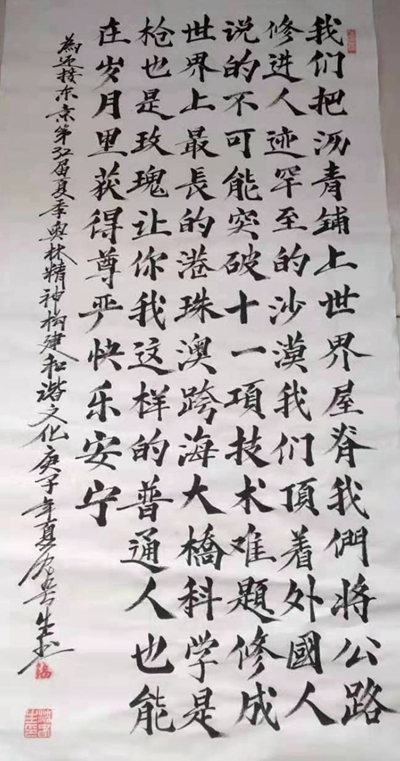 我们把沥青铺上世界屋脊我們將公路
修进人迹罕至的沙漠我们頂着外國人
说的不可能突破十一項技术难题修成
世界上最長的港珠澳跨海大橋科学是
枪也是玫瑰让你我这样的普通人也能
在岁月里获得尊严快乐安宁
為迎接东京第32届夏季奥林精神构建和谐文化庚子年夏